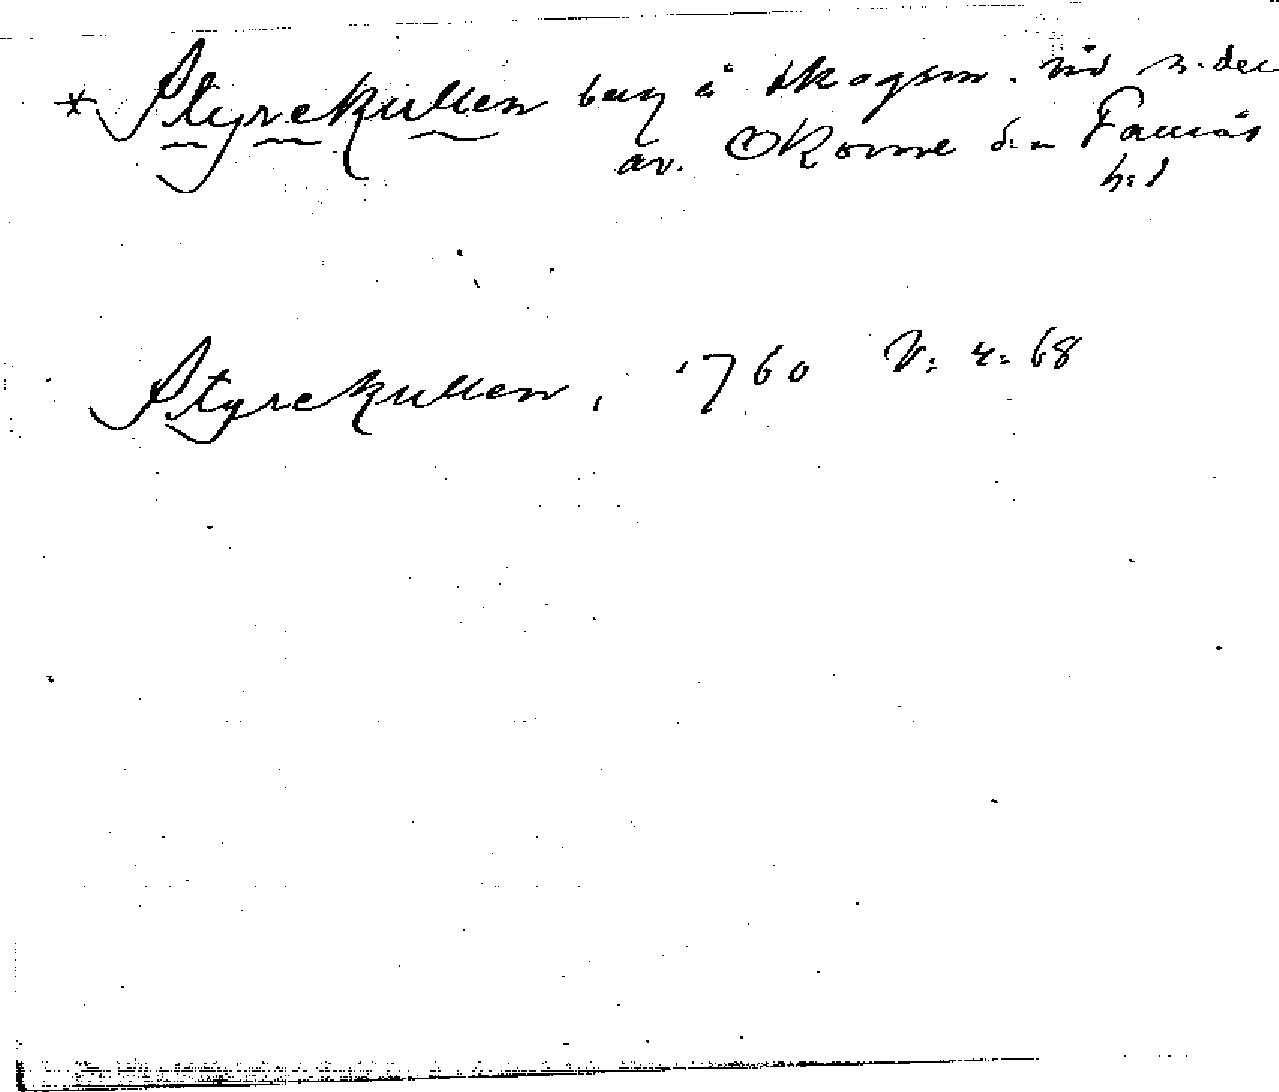 * Styrekullen berg å skogen. vid n. den
av. Skovne s:n Faurås
h:d
Styrekullen, 1760 V: 4: 68